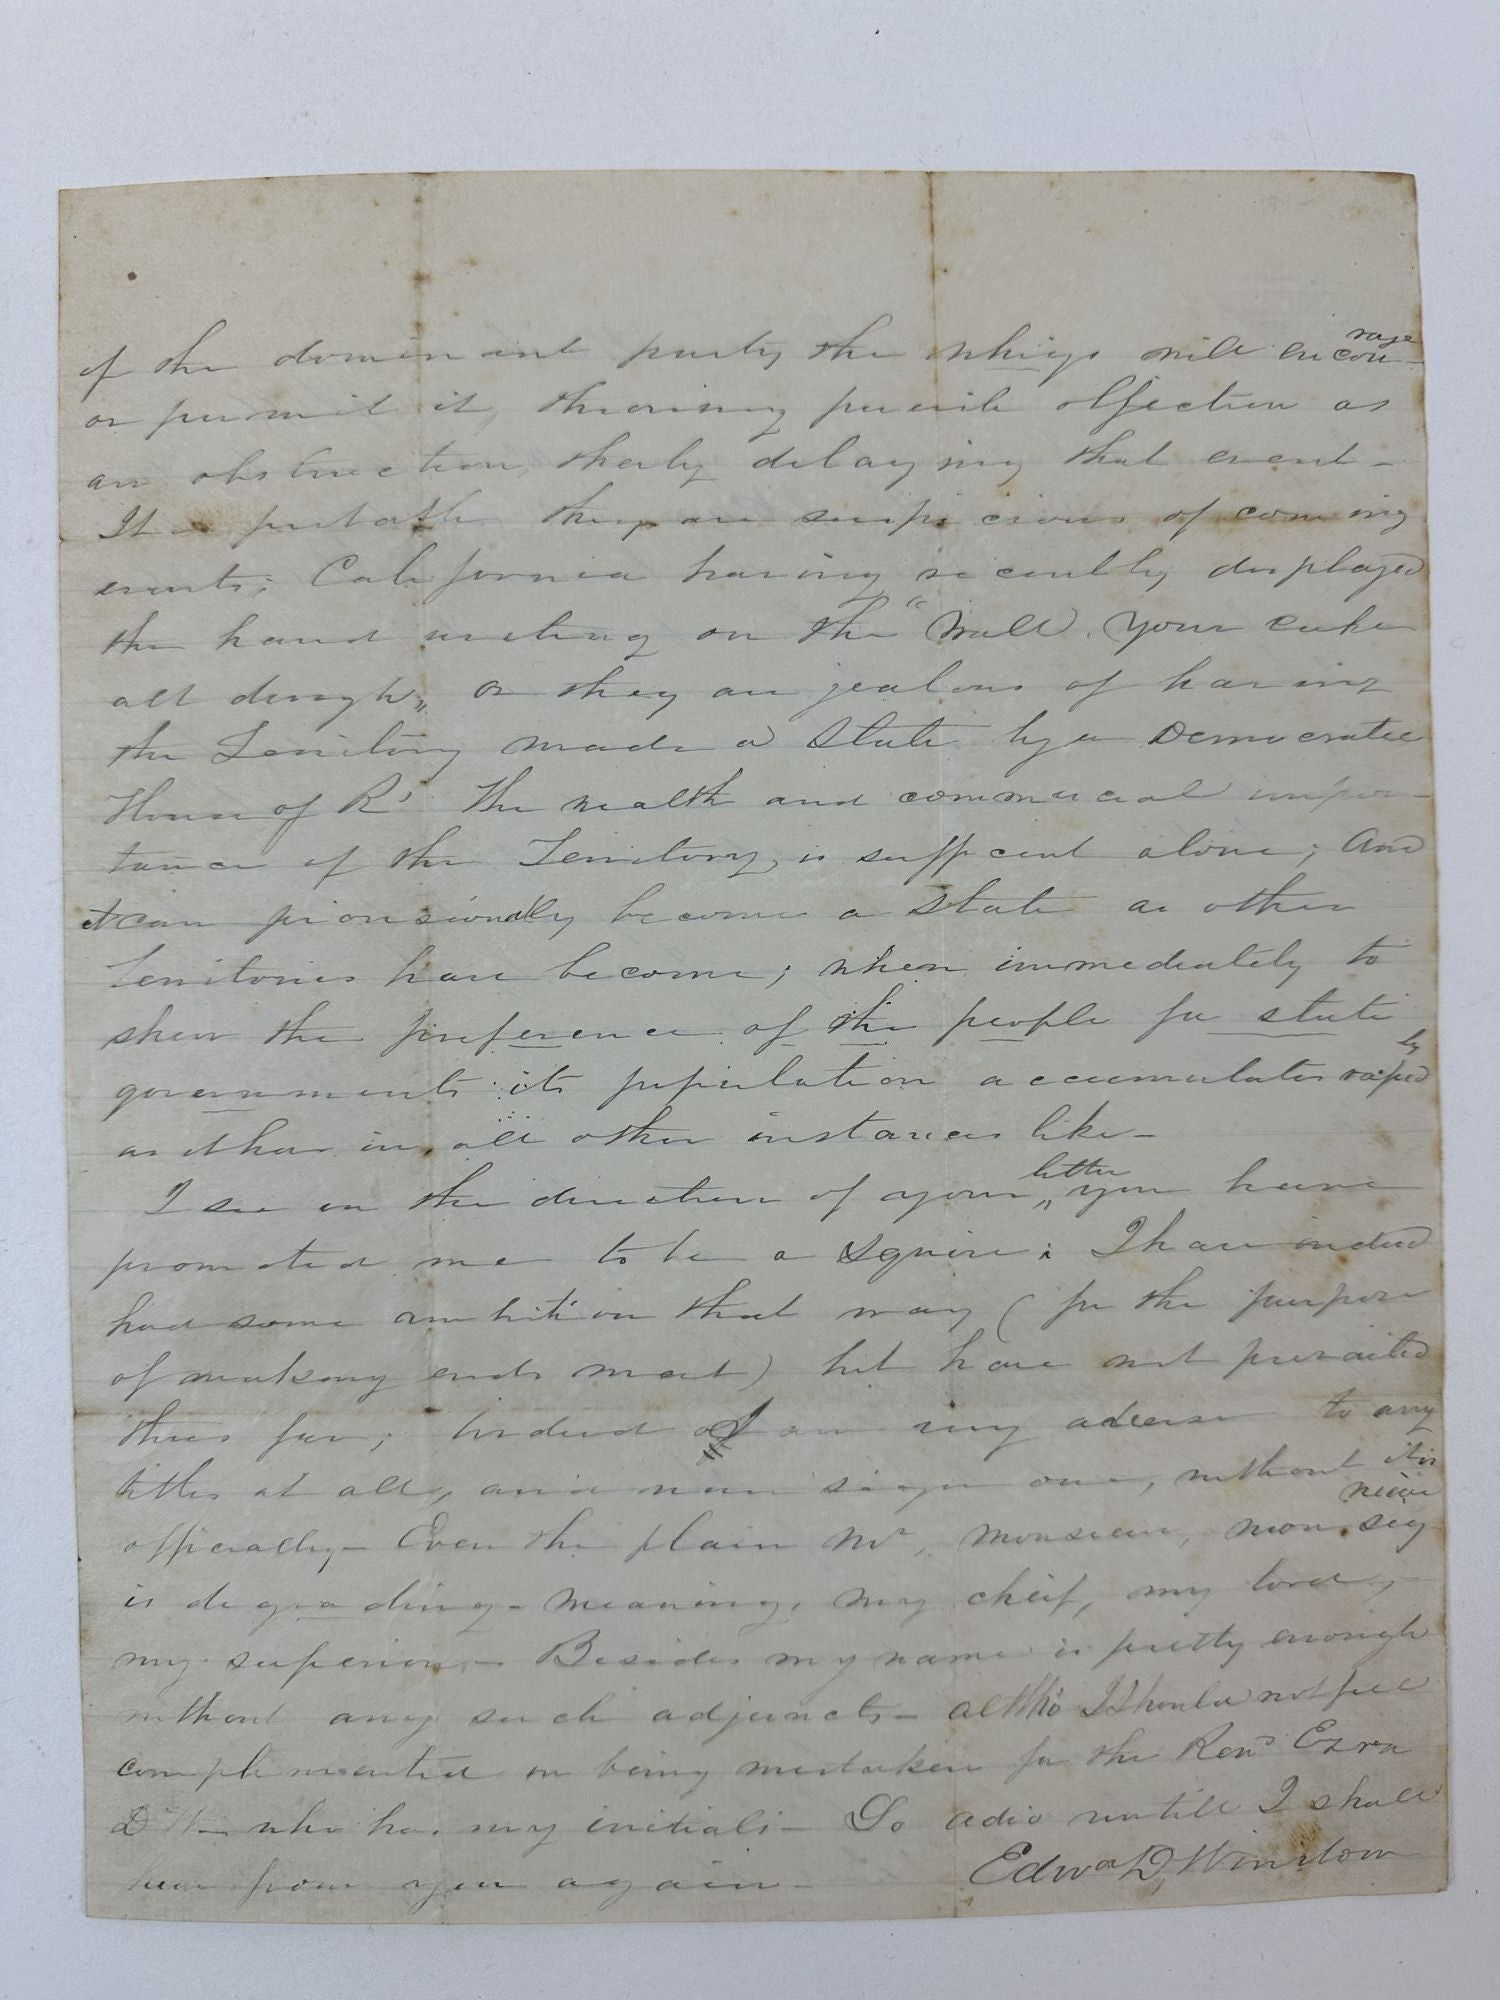 of the dominent party the whigs will encourage
or permit it, throwing puerile objection as
an obstruction, therby delaying that event -
It is probable they are suspicious of coming
events; California having recently displayed
the hand writing on the "wall. Your cake
all dough," or they are jealous of having
the Territory made a State by a Democratic
House of Rs The wealth and commercial impor-
tance of the Territory, is sufficent alone; and
it can provisionally become a State as other
Territories have become; when immediately to
shew the preference of the people for state
governments its population accumulates rapidly
as it has in all other instances like -
I see in the direction of your letter you have
promoted me to be a Squire; I have indeed
had some ambition that way (for the purpose
of making ends meet) but have not prevailed
thus far; Indeed I am very adverse to any
titles at all, and never sign one, without it is
officially - Even the plain Mr, monsieur, monsiegnieur
is degrading - meaning, my chief, my lord, -
my superior, - Besides my name is pretty enough
without any such adjuncts - altho I should not feel
complemented on being mistaken for the Revd Ezra
D W - who has my initials - So adio untill I shall
hear from you again - Edwd D, Winslow